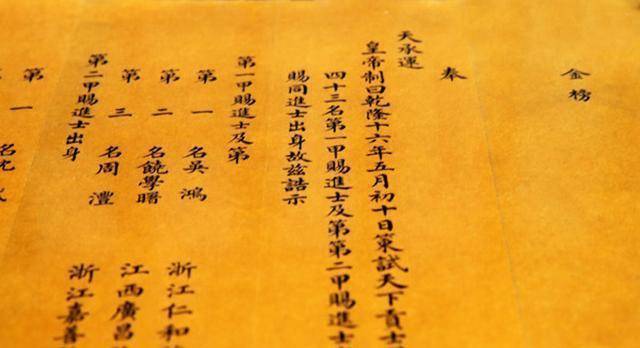 金榜
奉
天承運
皇帝制曰乾隆十六年五月初十日策試天下貢士
四十三名第一甲賜進士及第第二甲賜進士
賜同進士出身故兹誥示
第一甲賜進士及第
第一名吳鴻 浙江仁和
第二名饒學曙 江西廣昌
第三名周澧 浙江嘉善
第二甲賜進士出身
第一名